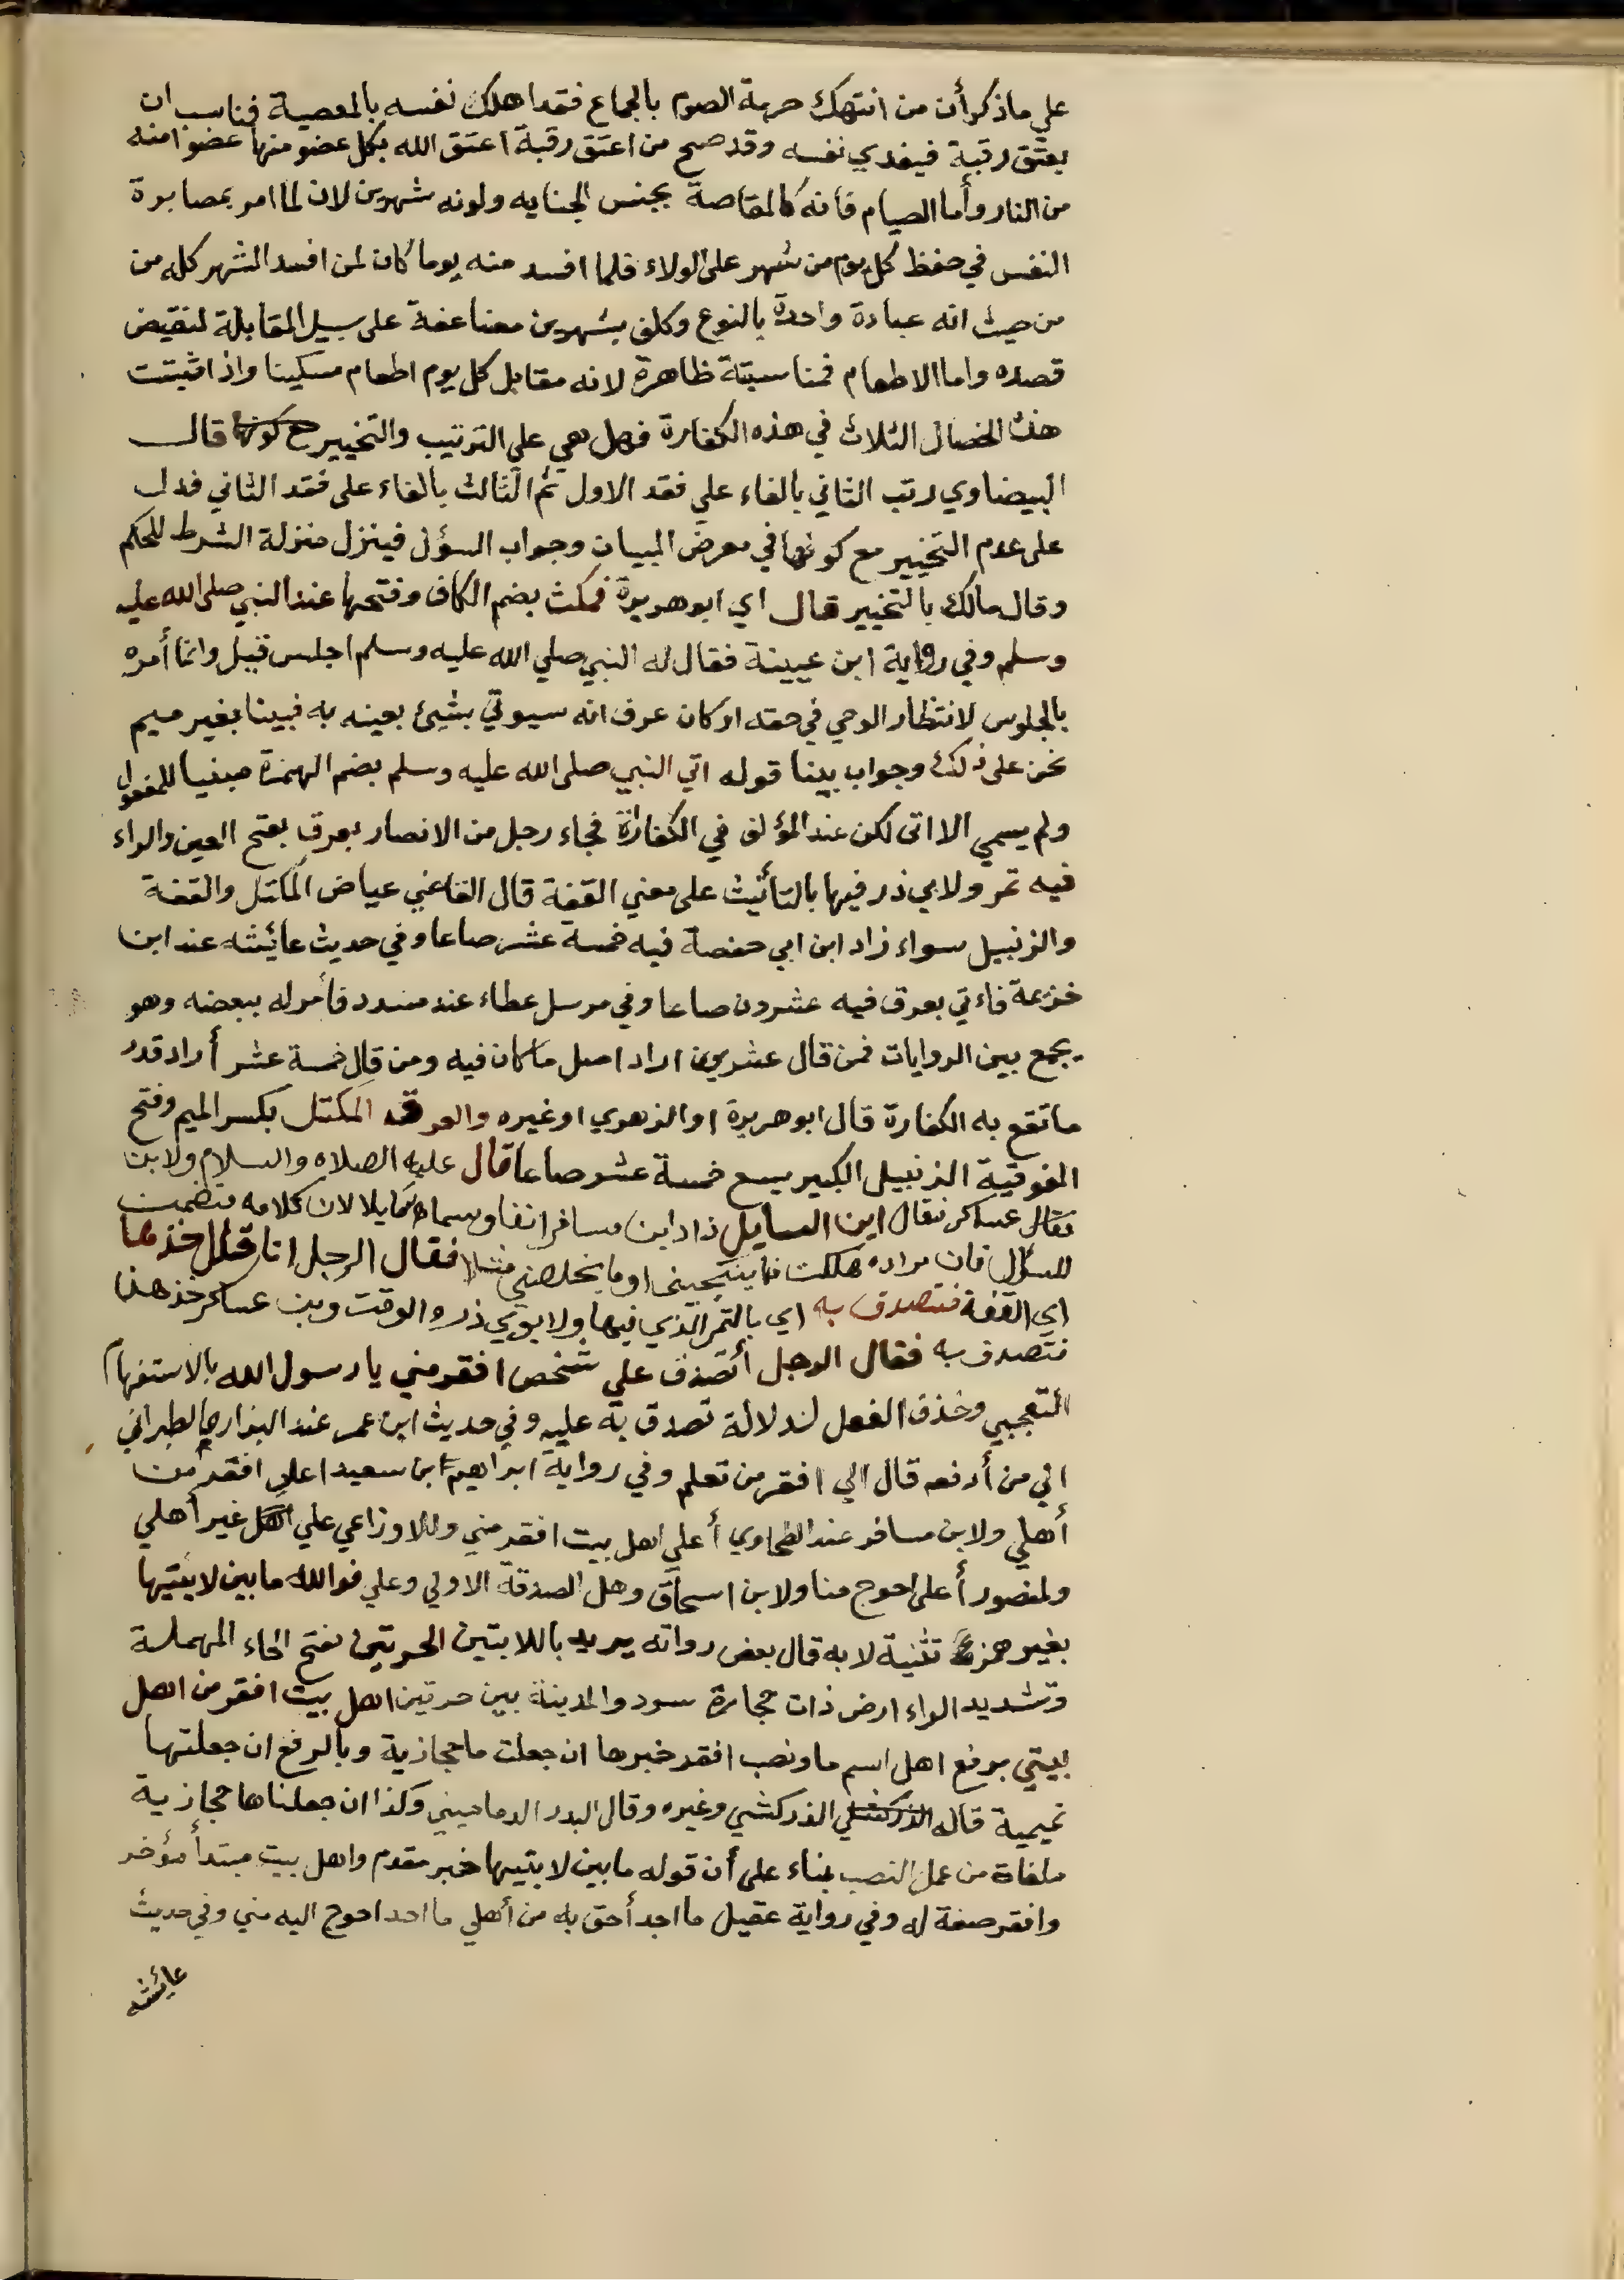 علي ما ذكر أن من انتهك حرمة الصوم بالجماع فقد اهلك نفسه بالمعصية فناسب ان
يعتق رقبة فيفدي نفسه وقد صح من اعتق رقبة اعتق الله بكل عضو منها عضوا منه
من النار وأما الصيام فانه كالمقاصة بجنس الجنايه وكونه شهرين لان لما امر بمصابرة
النفس في حفظ كل يوم من شهر على الولاء فلما افسد منه يوما كان لمن افسد الشهر كله من
من حيث انه عبادة واحدة بالنوع وكلف بشهرين مضاعفة على سبيل المقابلة لنقيض
قصده واما الاطعام فمناسبته ظاهرة لانه مقابل كل يوم اطعام مسكينا واذا ثبتت
هذه الخصال الثلاث في هذه الكفارة فهل هي علي الترتيب والتخيير مع كونها قال
البيضاوي رتب الثاني بالفاء علي فقد الاول ثم الثالث بالفاء على فقد الثاني فدل
على عدم التخيير مع كونها في معرض البيان وجواب السؤل فينزل منزلة الشرط للحكم
وقال مالك بالتخيير قال اي ابو هريرة فمكث بضم الكاف وفتحها عند النبي صلى الله عليه
وسلم وفي رواية ابن عيينة فقال له النبي صلي الله عليه وسلم اجلس قيل وانما أمره
بالجلوس لانتظار الوحي في حقه او كان عرف انه سيوتي بشيئ بعينه به فبينا بغير ميم
نحن على ذلك وجواب بينا قوله اتي النبي صلى الله عليه وسلم بضم الهمزة مبنيا للمفعول
ولم يسمي الا اتى لكن عند المؤلف في الكفارة فجاء رجل من الانصار بعرق بفتح العين والراء
فيه تمر ولابي ذر فيها بالتأنيث على معني القفة قال القاضي عياض المكتل والقفة
والزنبيل سواء زاد ابن ابي حفصة فيه خمسة عشر صاعا وفي حديث عائيشه عند ابن
خزيمة فاءتي بعرق فيه عشرون صاعا وفي مرسل عطاء عند مسدد فأمر له ببعضه وهو
يجمع بين الروايات فمن قال عشرين اراد اصل ما كان فيه ومن قال خمسة عشر أراد قدر
ما تقع به الكفارة قال ابو هريرة او الزهري او غيره والعرق المكتل بكسر الميم وفتح
الفوقية الزنبيل الكبير يسع خمسة عشر صاعا قال عليه الصلاه والسلام ولابن
عساكر فقال اين السايل زاد ابن مسافر انفا وسماه سايلا لان كلامه متضمن
للسؤال فان مراده هلكت فما ينجيني او ما يخلصني مثلا فقال الرجل انا قال خذها
اي القفة فتصدق به اي بالتمر الذي فيها ولابوي ذر والوقت وبن عساكر خذ هذا
فتصدق به فقال الرجل أتصدق علي شخص افقر مني يا رسول الله بالاستفهام
التعجبي وحذف الفعل لدلالة تصدق به عليه وفي حديث ابن عمر عند البزار والطبراني
الي من أدفعه قال الي افقر من تعلم وفي رواية ابراهيم ابن سعيد اعلى افقر من
أهلي ولابن مسافر عند الطحاوي أعلي اهل بيت افقر مني وللاوزاعي علي غير أهلي
ولمنصور أعلى احوج منا ولابن اسحاق وهل الصدقة الا لي وعلي فوالله ما بين لابتيها
بغير همزة تثنية لابه قال بعض رواته يريد باللابتين الحرتين بفتح الحاء المهملة
وتشديد الراء ارض ذات حجارة سود والمدينة بين حرتين اهل بيت افقر من اهل
بيتي برفع اهل اسم ما ونصب افقر خبرها ان جعلت ما حجازية وبالرفع ان جعلتها
تميمية قاله الزركشي وغيره وقال البدر الدماميني وكذا ان جعلناها حجازية
ملغاة من عمل النصب بناء على أن قوله ما بين لابتيها خبر مقدم واهل بيت مبتدأ مؤخر
وافقر صفة له وفي رواية عقيل ما اجد أحق به من أهلي ما احد احوج اليه مني وفي حديث
عائيشه